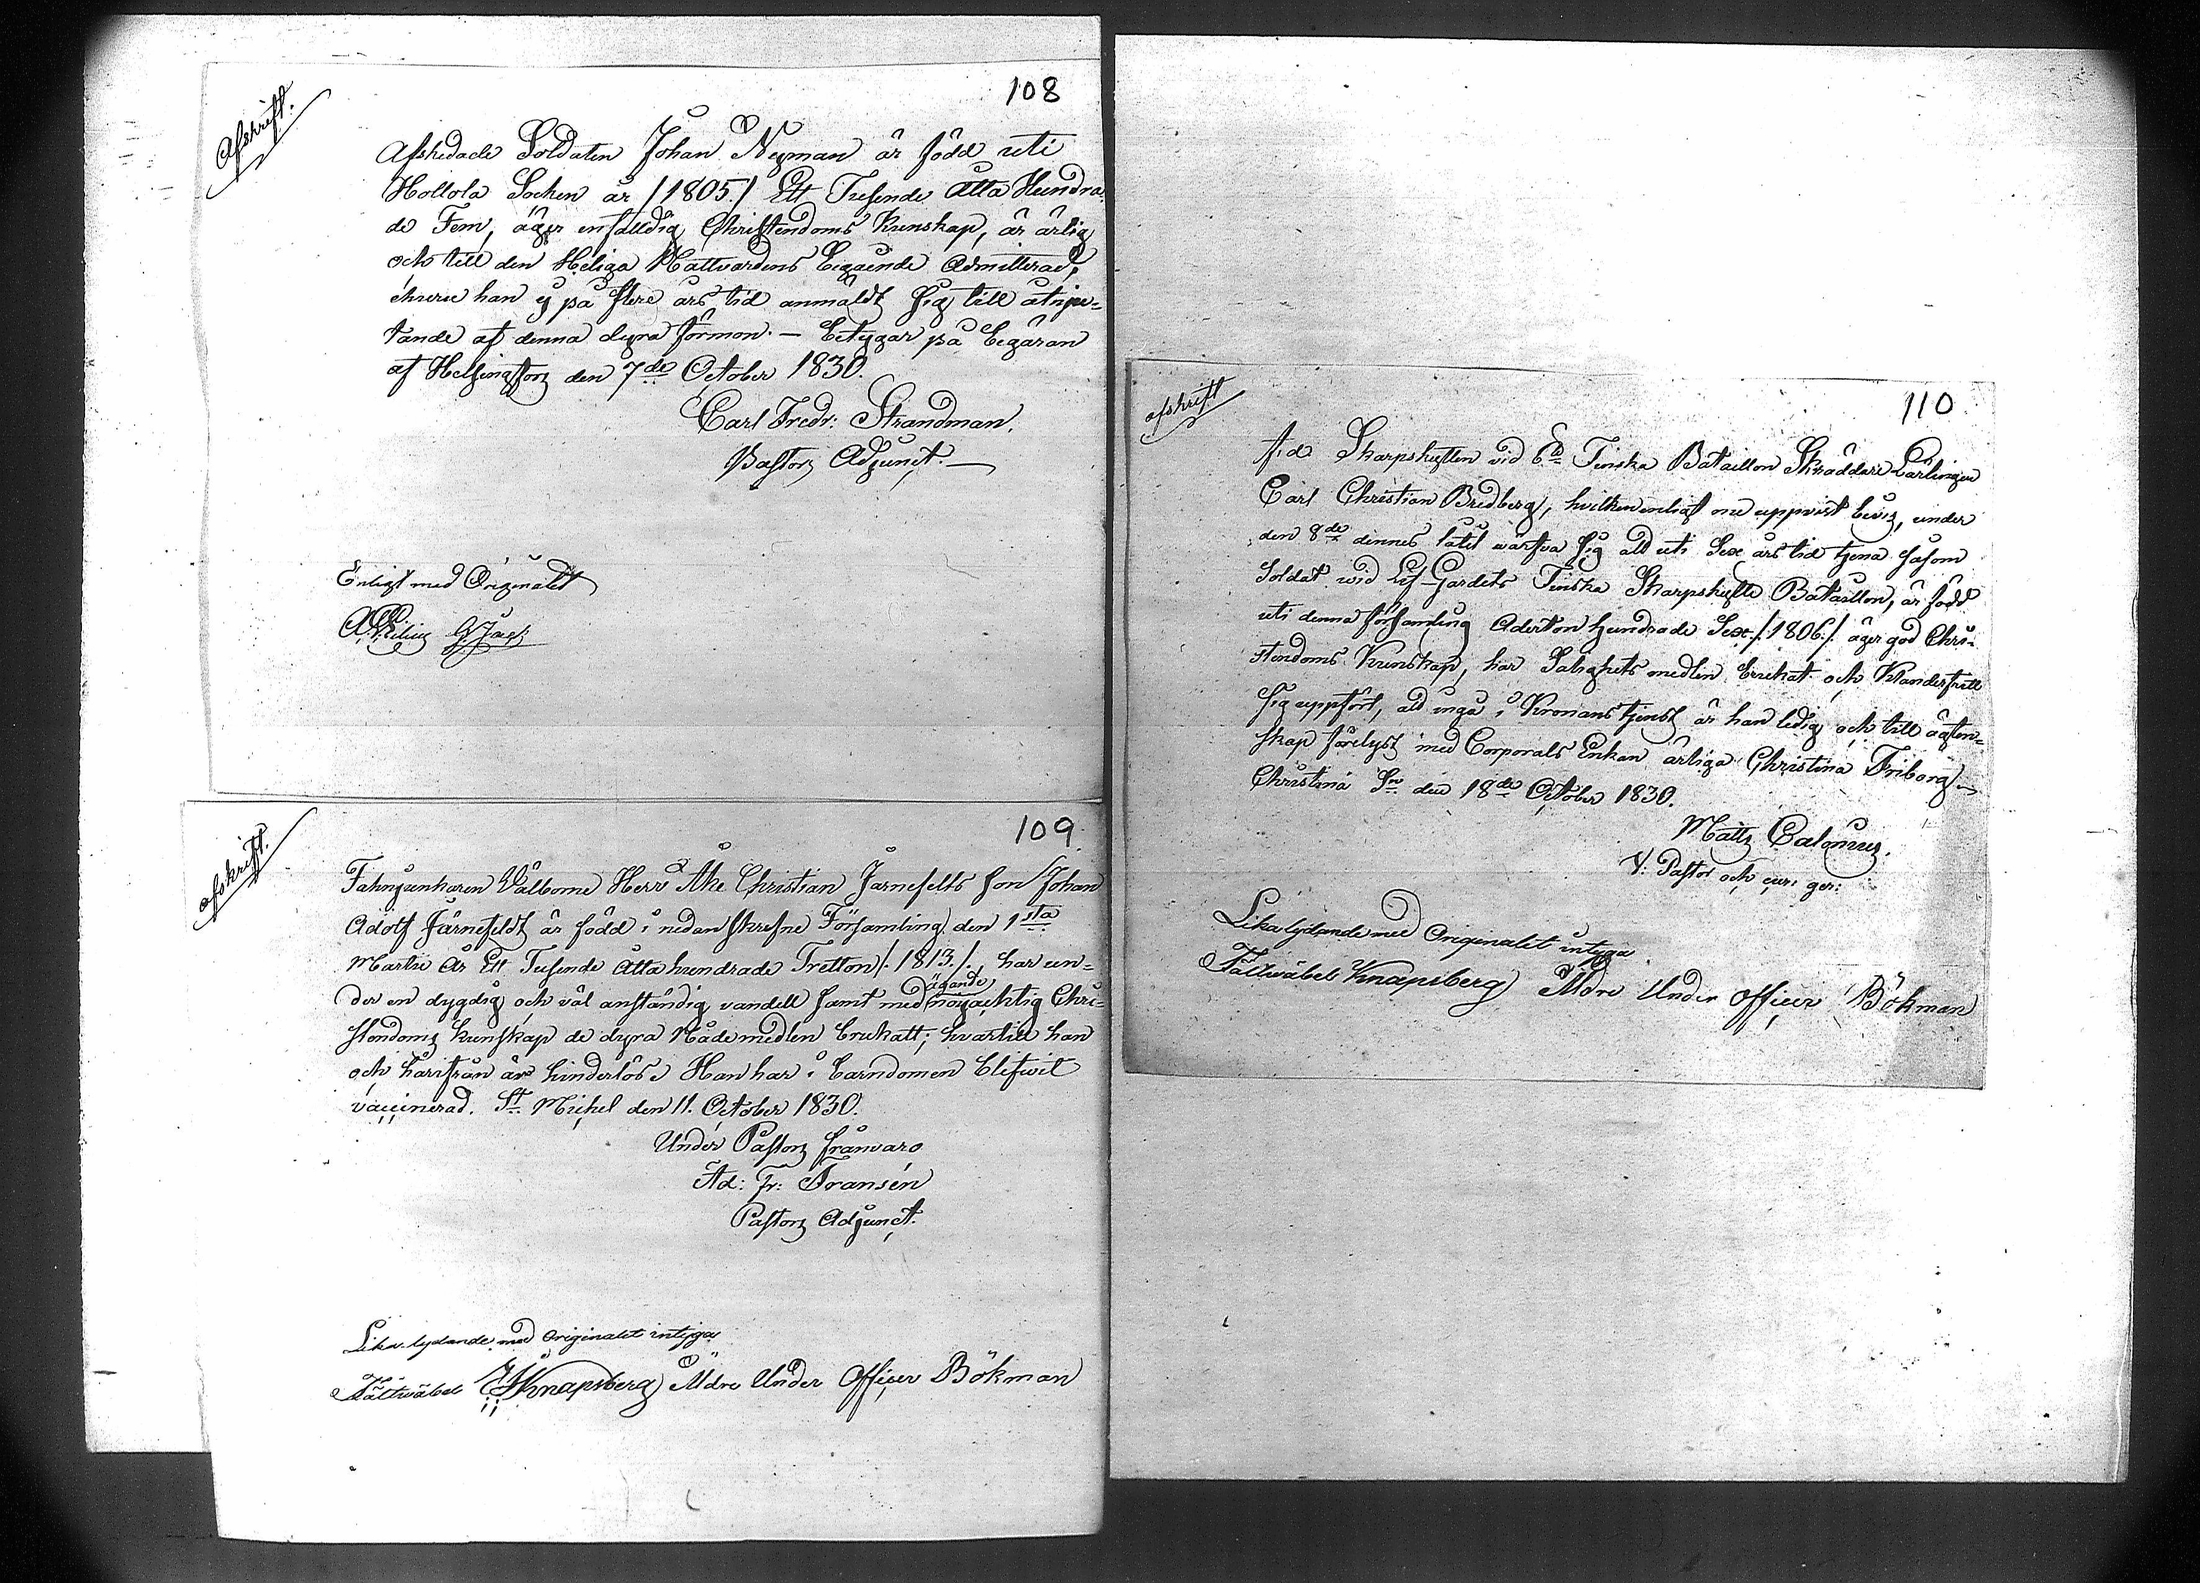 108
Afskrift.
Afskedade Soldaten Johan Nyman är född uti
Hollola Socken år /1805./ Ett Tusende Åtta Hundra-
de Fem, äger enfalldig Christendoms Kunskap, är ärlig
och till den Heliga Nattvardens Begående Admitterad,
ehuru han ej på flere års tid anmäldt sig till åtnju-
tande af denna dyra förmon. — Betygar på begäran
af Helsingfors den 7de October 1830.
Carl Fredr: Strandman.
Pastors Adjunct. —
Enligt med Originalet
109
afskrift.
Fahnjunkaren Välborne Herr Åke Christian Järnefelts son Johan
Adolf Järnefeldt är född i nedanskrefne Församling den 1sta
Martii År Ett Tusende Åtta hundrade Tretton /.1813./, har un-
der en dygdig och väl anständig vandell samt med ägande nögachtig Chri-
stendoms kunskap de dyra Nådemedlen brukatt; hvartill han
och härifrån är hinderlös. Han har i barndomen blifwit
vaccinerad. St. Michel den 11. October 1830.
Under Pastors frånvaro
Ad: Fr: Fransén
Pastors Adjunct.
Lika lydande med Originalet intygar
Fältwäbel Knapsberg Äldre Under Officer Bökman
110
afskrift
f.d. Skarpskytten vid 6te Finska Bataillon Skräddare Lärlingen
Carl Christian Bredberg, hvilken enligt nu uppvist bevis, under
den 8de dennes låtit wärfva sig att uti Sex års tid tjena såsom
Soldat wid Lif-Gardets Finska Skarpskytte Bataillon, är född
uti denna församling Aderton hundrade Sex /.1806./. äger god Chri-
stendoms Kunskap, har Salighets medlen brukat och Klanderfritt
sig uppfört, att ingå i Kronans tjenst är han ledig och till ägten-
skap förelyst med Corporals Enkan ärliga Christina Friborg. —
Christina Sn den 18de October 1830.
Matts Calonius.
V: Pastor och
Lika lydande med Originalet intyga
Fältwäbel Knapsberg Äldre Under officer Bökman